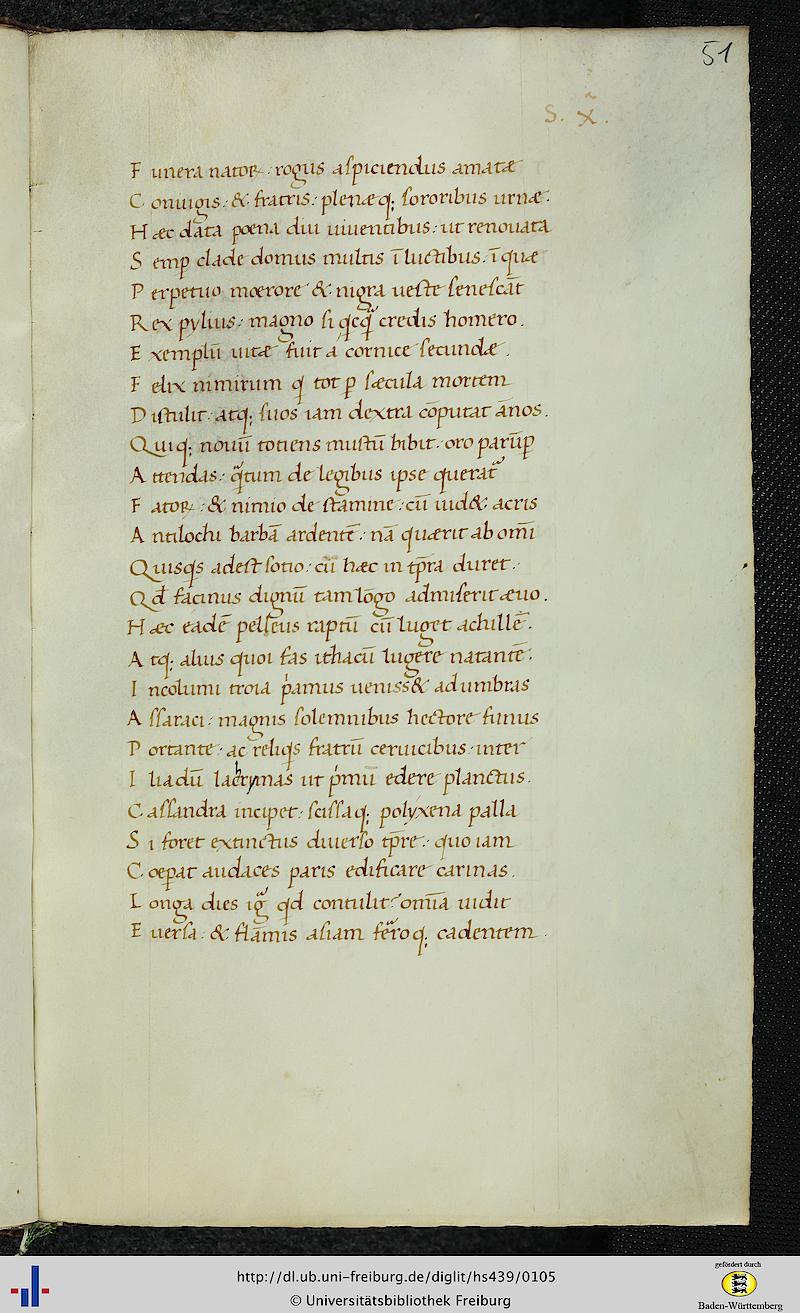 51
S. X̃.
F unera natoꝝ. rogus aſpiciendus amatæ
C oniugis: & fratris: plenæq; ſororibus urnæ.
H æc data poena diu uiuentibus: ut renouata
S emꝑ clade domus multis ĩ luctibus. ĩ quæ
P erpetuo mœrore & nigra ueſte ſeneſcãt
R ex pylius: magno ſi qͥcqͣ credis homero.
E xemplũ uitæ fuit a cornice ſecundæ.
F elix nimirum q tot ꝑ ſæcula mortem
D iſtulit. atq; ſuos iam dextra cõputat ãnos.
Q uiq; nouũ totiens muſtũ bibit. oro parũꝑ
A ttendas: qͣtum de legibus ipse queratᷣ
F atoꝝ: & nimio de ſtamine: cũ uid& acris
A ntilochi barbã ardentẽ: nã quærit ab om̃i
Q uisqͥs adeſt ſotio: cũ hæc in tp̃ra duret.
Q đ facinus dignũ tam lõgo admiſerit æuo.
H æc eadẽ pelleus raptũ cũ luget achillẽ.
A tq; alius quoi fas ithacũ lugere natantẽ.
I ncolumi troia pͥamus ueniss& ad umbras
A ſſaraci: magnis ſolemnibus hectore funus
P ortante. ac reliqͥs fratrũ ceruicibus. inter
I liadũ lachrymas ut pͥmũ edere planctus.
C aſſandra incipet. ſciſſaq; polyxena palla
S i foret extinctus diuerſo tp̃re. quo iam
C oeꝑat audaces paris edificare carinas.
L onga dies igͣ qd contulit? om̃ia uidit
E uerſa. & flãmis aſiam feͬroq; cadentem.
http://dl.ub.uni-freiburg.de/diglit/hs439/0105
© Universitätsbibliothek Freiburg
gefördert durch
Baden-Württemberg